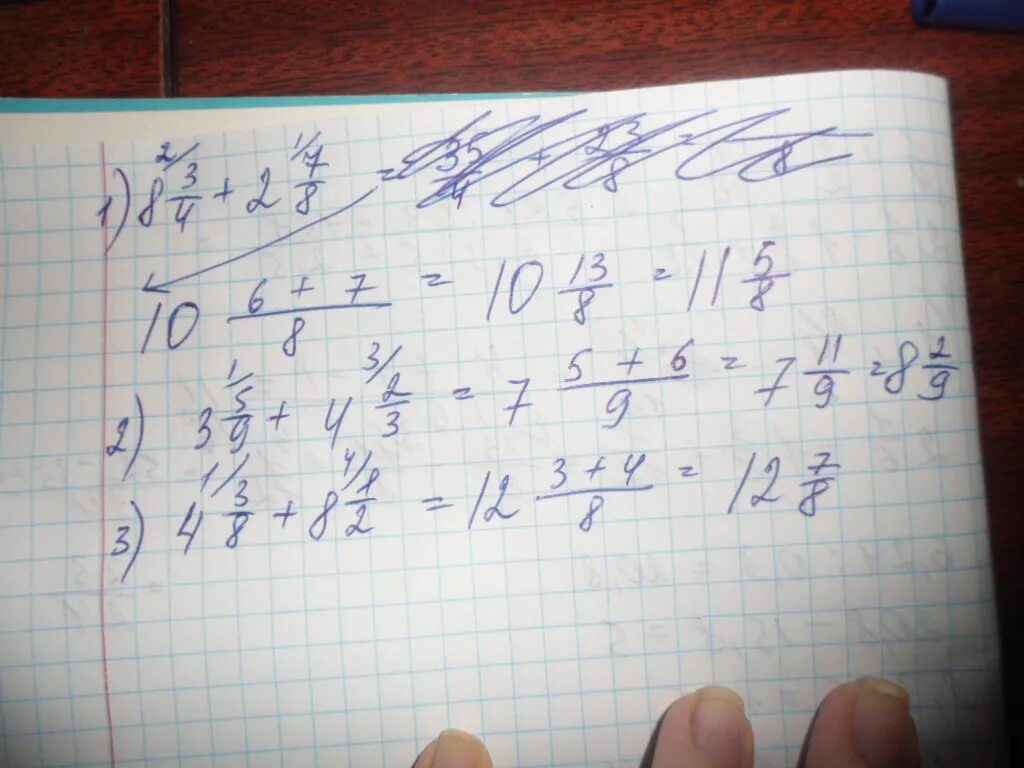 1) 8 2/ 3/4 + 2 1/ 7/8 = 35/4 + 23/8 = /8
10 (6 + 7)/8 = 10 13/8 = 11 5/8
2) 3 1/ 5/9 + 4 3/ 2/3 = 7 (5 + 6)/9 = 7 11/9 = 8 2/9
3) 4 1/ 3/8 + 8 4/ 1/2 = 12 (3 + 4)/8 = 12 7/8